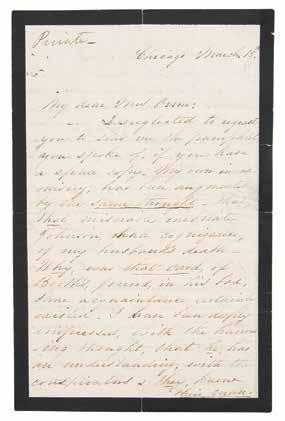 Private -
Chicago March 15.
My dear Mrs Orne:
I neglected to request
you to send me the pamphlet
you spoke of, if you have
a spare copy. My own
misery, has been augmented
by the same thought - that,
that miserable inebriate
Johnson had cognizance,
of my husband's death -
Why, was that card, of
Booth's, found, in his box,
some acquaintance certainly
existed - I have been deeply
impressed, with the harrow-
ing thought, that he, has
an understanding, with the
conspirators & they, knew
their man.